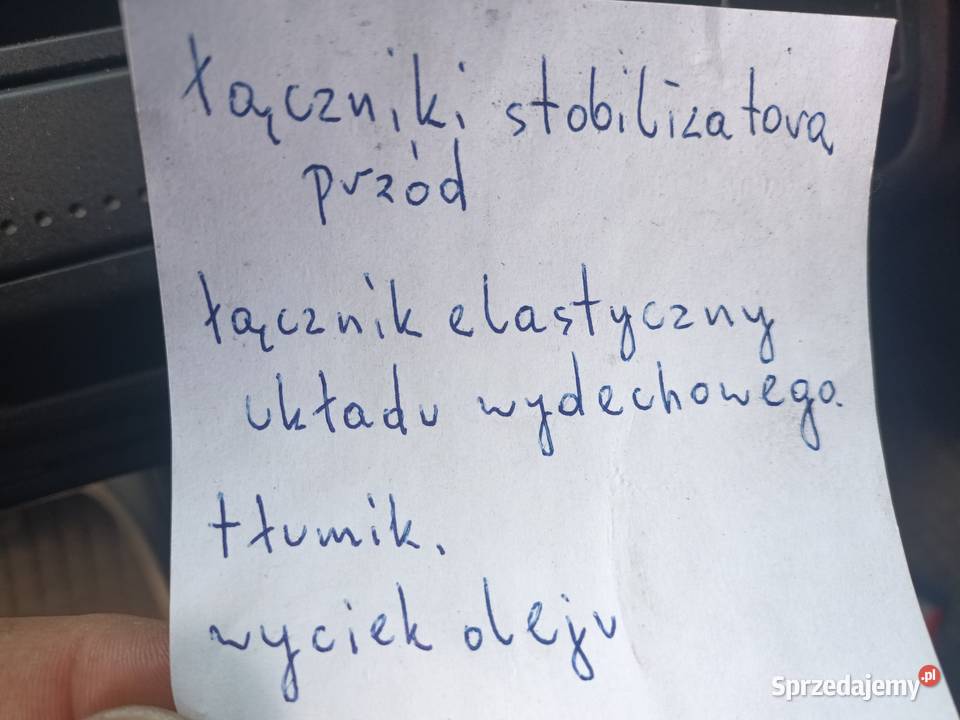 łączniki stobilizatora
przód
łącznik elastyczny
układu wydechowego.
tłumik.
wyciek oleju
Sprzedajemy.pl